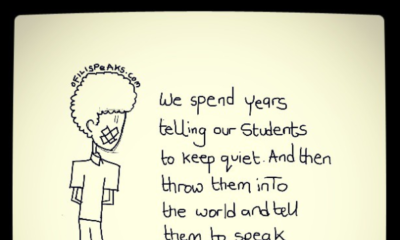 OFiLiSPeAKS.COM
We spend years
telling our Students
to keep quiet. And then
throw them inTo
the world and tell
them to speak